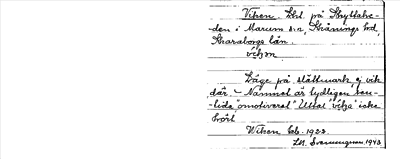 Viken. Lht. på Skyttahe-
den i Marum s:n, Skånings hd,
Skaraborgs län.
vi̇kən
Läge på slättmark, ej vik
där. - Namnet är tydligen sen-
tida "omotiverat". Uttal vika icke
hört
Wiken Eb. 1923.
1943